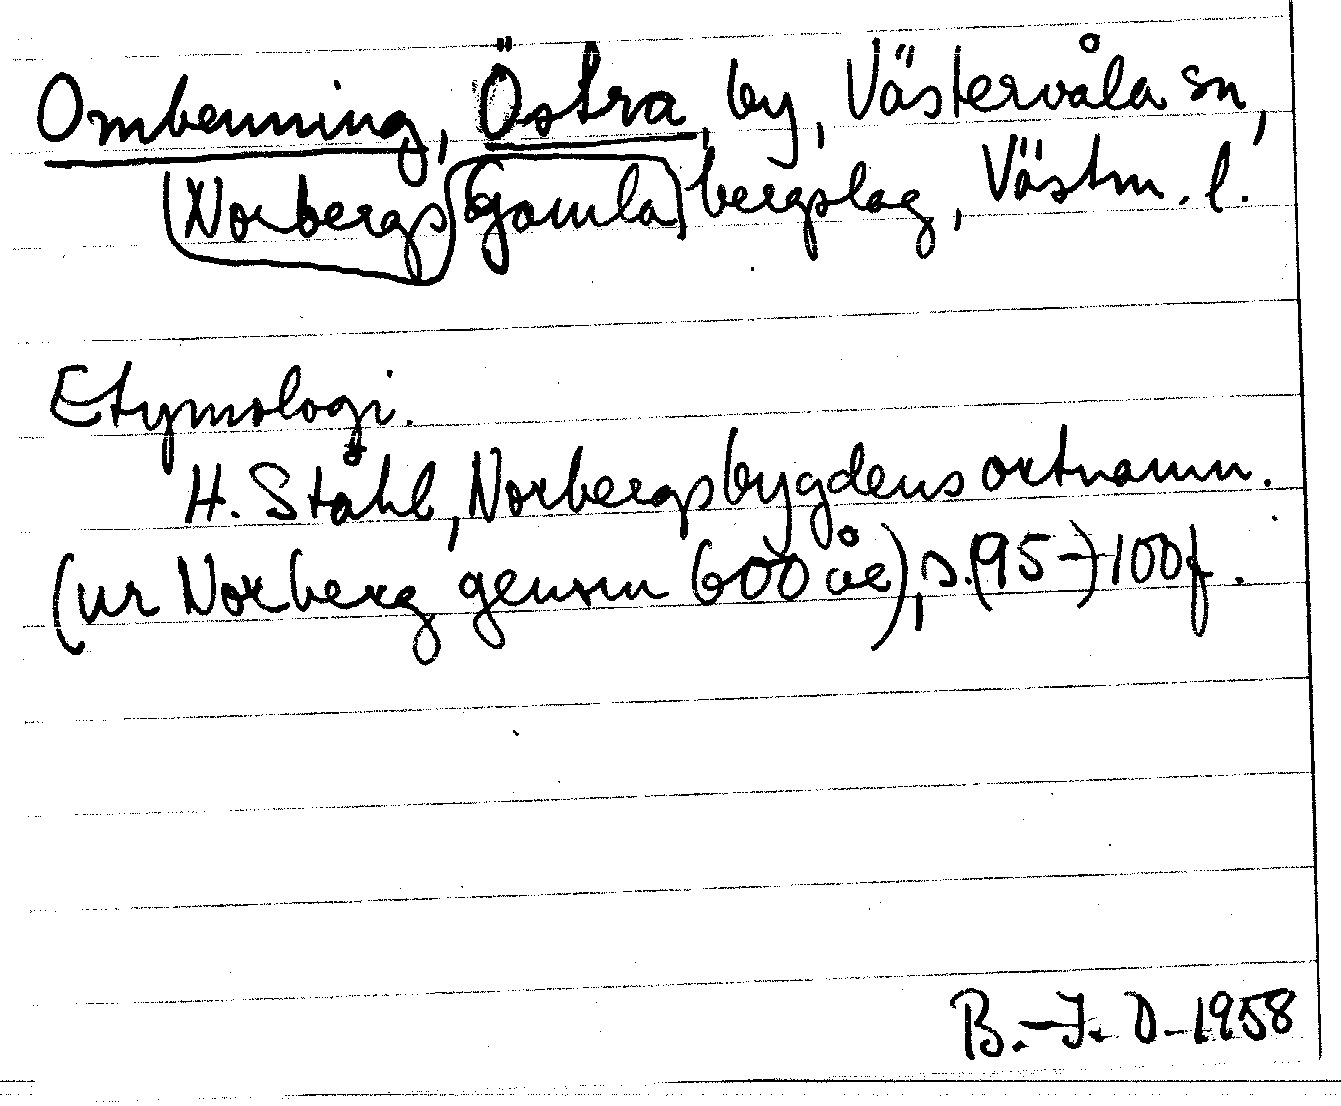 Ombenning, Östra, by, Västervåla sn,
Norbergs Gamla bergslag, Västm. l.
Etymologi.
H. Ståhl, Norbergsbygdens ortnamn.
(ur Norberg genom 600 år), s. (95-) 100 f.
B.-I. D. 1958